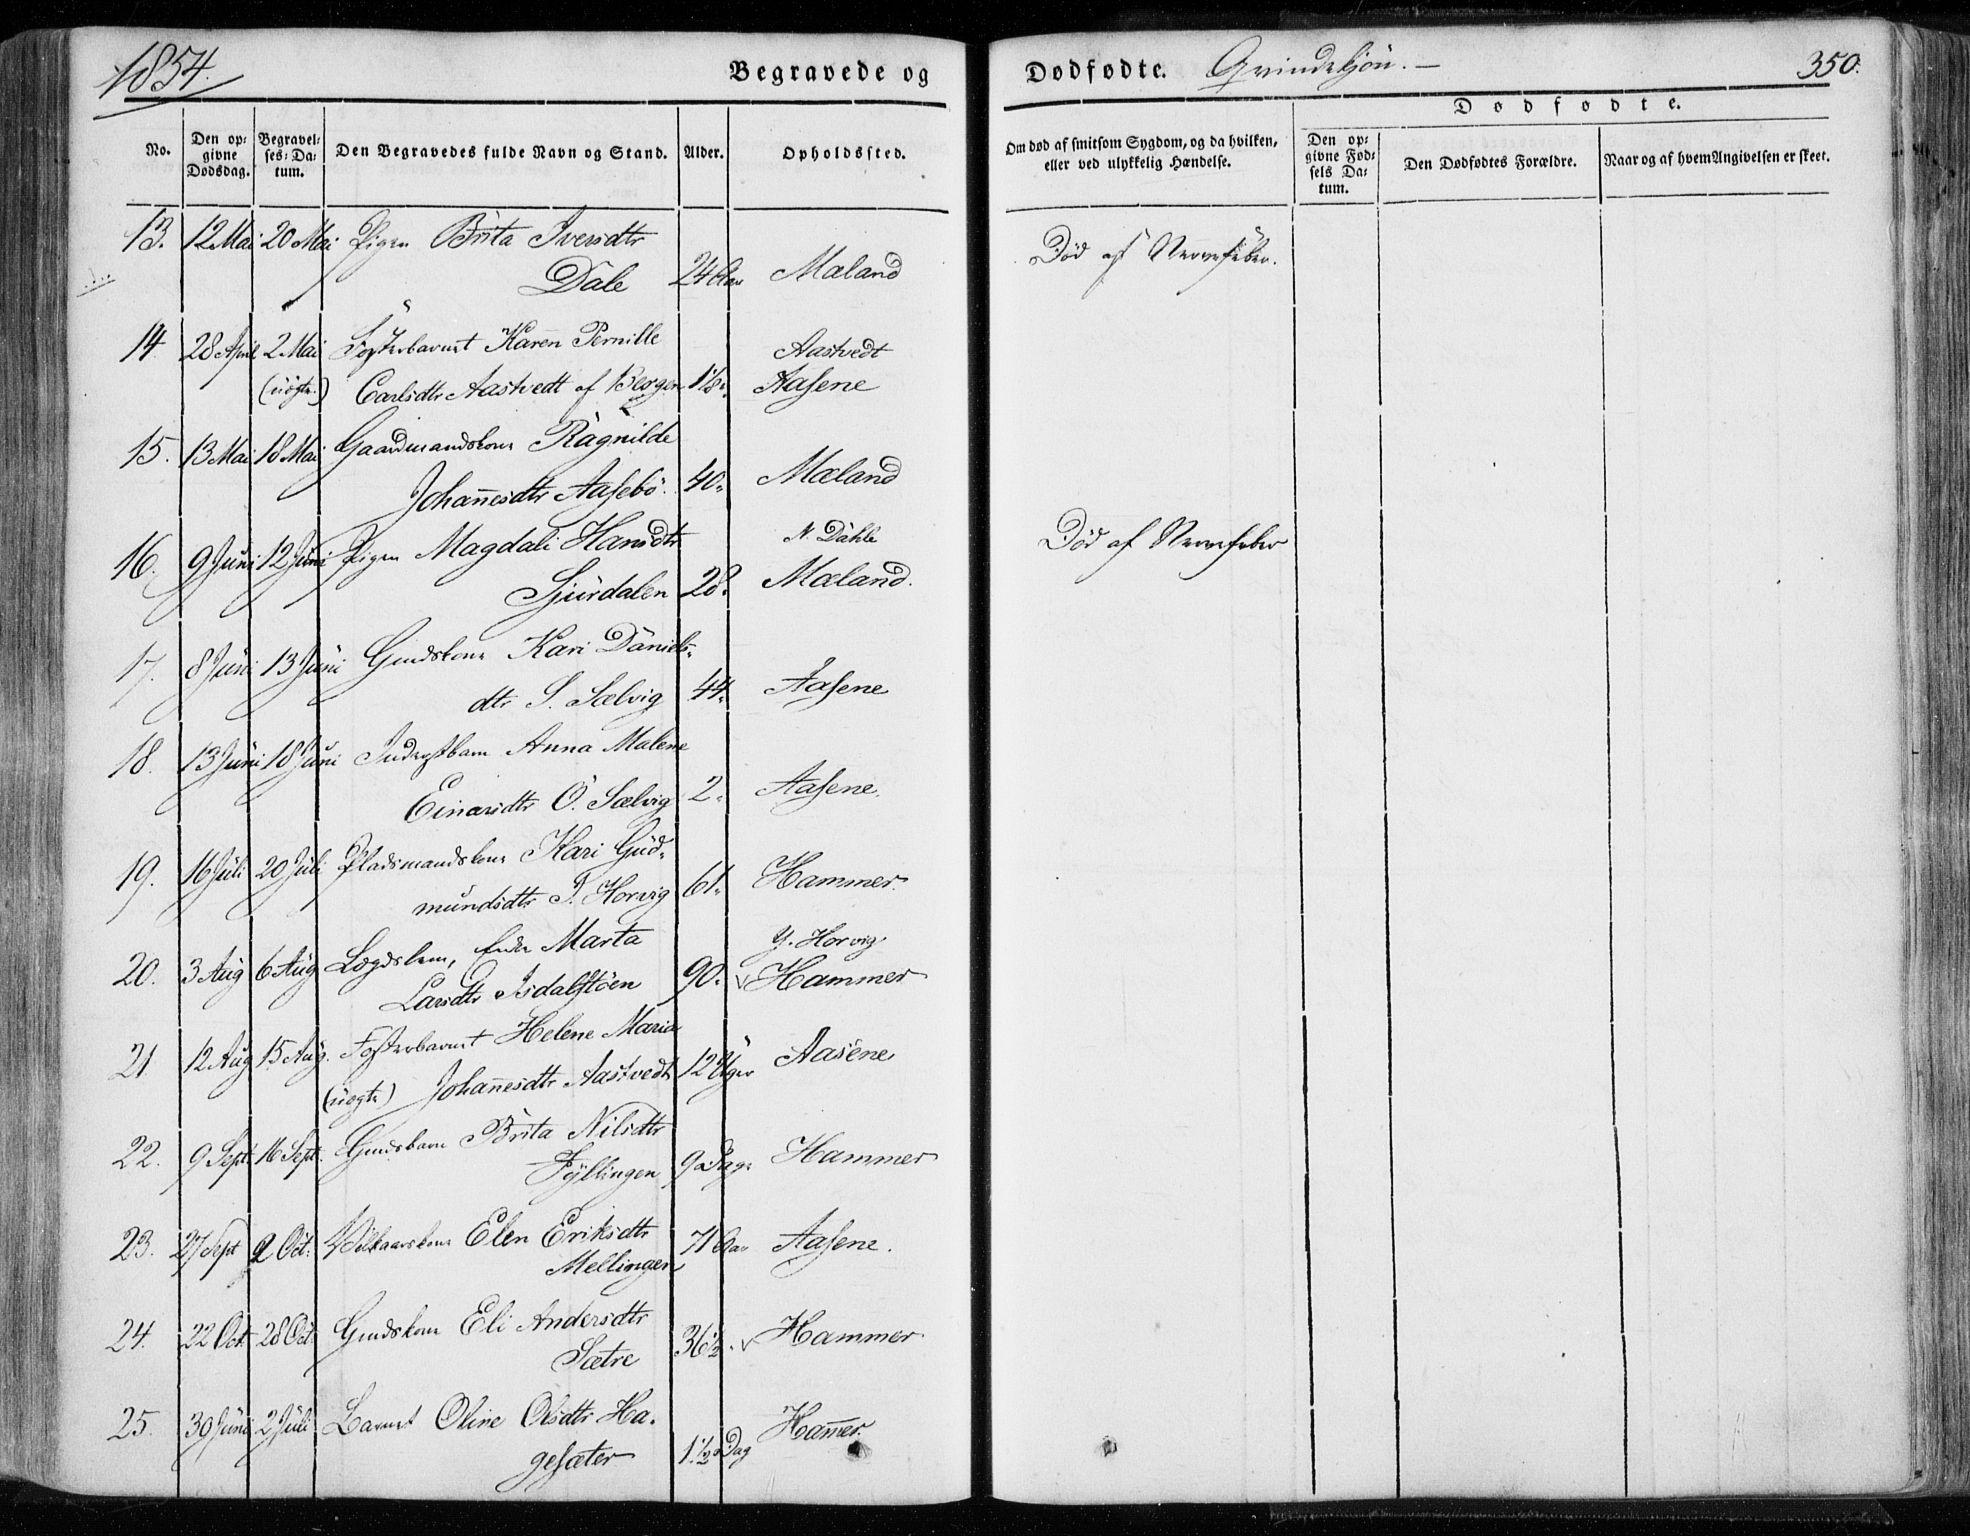 1854.
Begravede og
Dødfødte. Qvindekjön. —
350.
No.
Den op-
givne
Dødsdag.
Begravel-
ses-Da-
tum.
Den Begravedes fulde Navn og Stand.
Alder.
Opholdssted.
Om død af smitsom Sygdom, og da hvilken,
eller ved ulykkelig Hændelse.
Dødfødte.
Den op-
givne Fød-
sels Da-
tum.
Den Dødfødtes Forældre.
Naar og af hvem Angivelsen er skeet.
13. 12 Mai 20 Mai Pigen Brita Iversdtr
Dale 24 Aar Mæland
Død af Nervefeber.
14 28 April 2 Mai Fosterbarnet Karen Pernille
Aastvedt
(uægte.) Carlsdtr Aastvedt af Bergen 1 1/8 Aasene
15. 13 Mai 18 Mai Gaardmandskone Ragnilde
Johan̄esdtr Aasebö. 40 Mæland
16. 9 Juni 12 Juni Pigen Magdali Hansdtr
N. Dahle
Sjurdalen 28 Mæland.
Død af Nervefeber
17. 8 Juni 13 Juni Gmdskone Kari Daniels-
dtr S. Sælvig 44 Aasene
18. 13 Juni 18 Juni Inderstbarn Anna Malene
Einarsdtr Ö. Sælvig 2 Aasene.
19. 16 Juli 20 Juli Pladsmandskone Kari Gud-
mundsdtr Y. Horvig 61 Hammer.
20. 3 Aug 6 Aug Lægdslem, Enke Marta
Y. Horvig
Larsdtr Isdalstöen 90. Hammer
21 12 Aug 15 Aug. Fosterbarnet Helene Maria
(uægte) Johan̄esdtr Aastvedt 12 Uger Aasene
22. 9 Sept. 16 Sept. Gmdsbarn Brita Nilsdtr
Fyllingen 9 Dage Hammer
23. 27 Sept 2 Oct. Vilkaarskone Elen Eriksdtr
Mellingen 71 Aar Aasene.
24. 22 Oct. 28 Oct. Gmdskone Eli Andersdtr
Sætre 36 1/2 Hammer
25. 30 Juni 2 Juli Barnet Oline Olsdtr Ha-
gesæter 1 1/2 Dag Ham̄er.